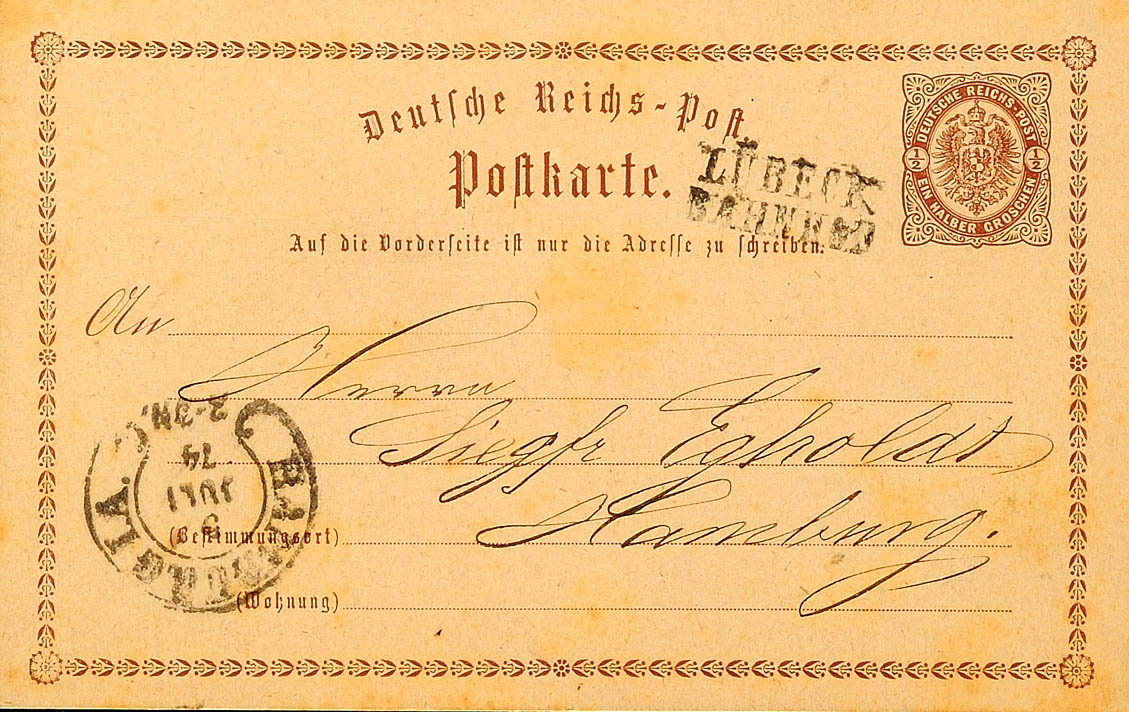 Deutsche Reichs-Post.
Postkarte.
Auf die Vorderseite ist nur die Adresse zu schreiben.
DEUTSCHE REICHS-POST
1/2 1/2
EIN HALBER GROSCHEN
LÜBECK
BAHNHOF
An
Herrn
Siegfr
Hamburg.
(Bestimmungsort)
(Wohnung)
HAMBURG I.A.
JULI
74